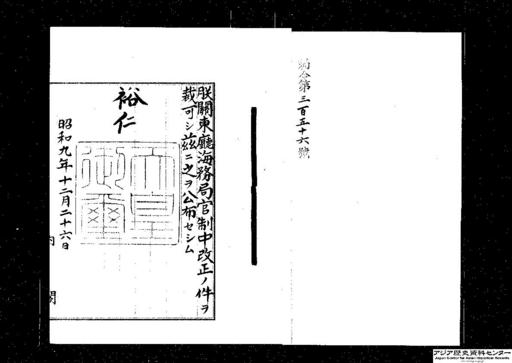 勅令第三百五十六號
朕關東廳海務局官制中改正ノ件ヲ
裁可シ茲ニ之ヲ公布セシム
裕仁
天皇御璽
昭和九年十二月二十六日
内閣
アジア歴史資料センター
Japan Center for Asian Historical Records